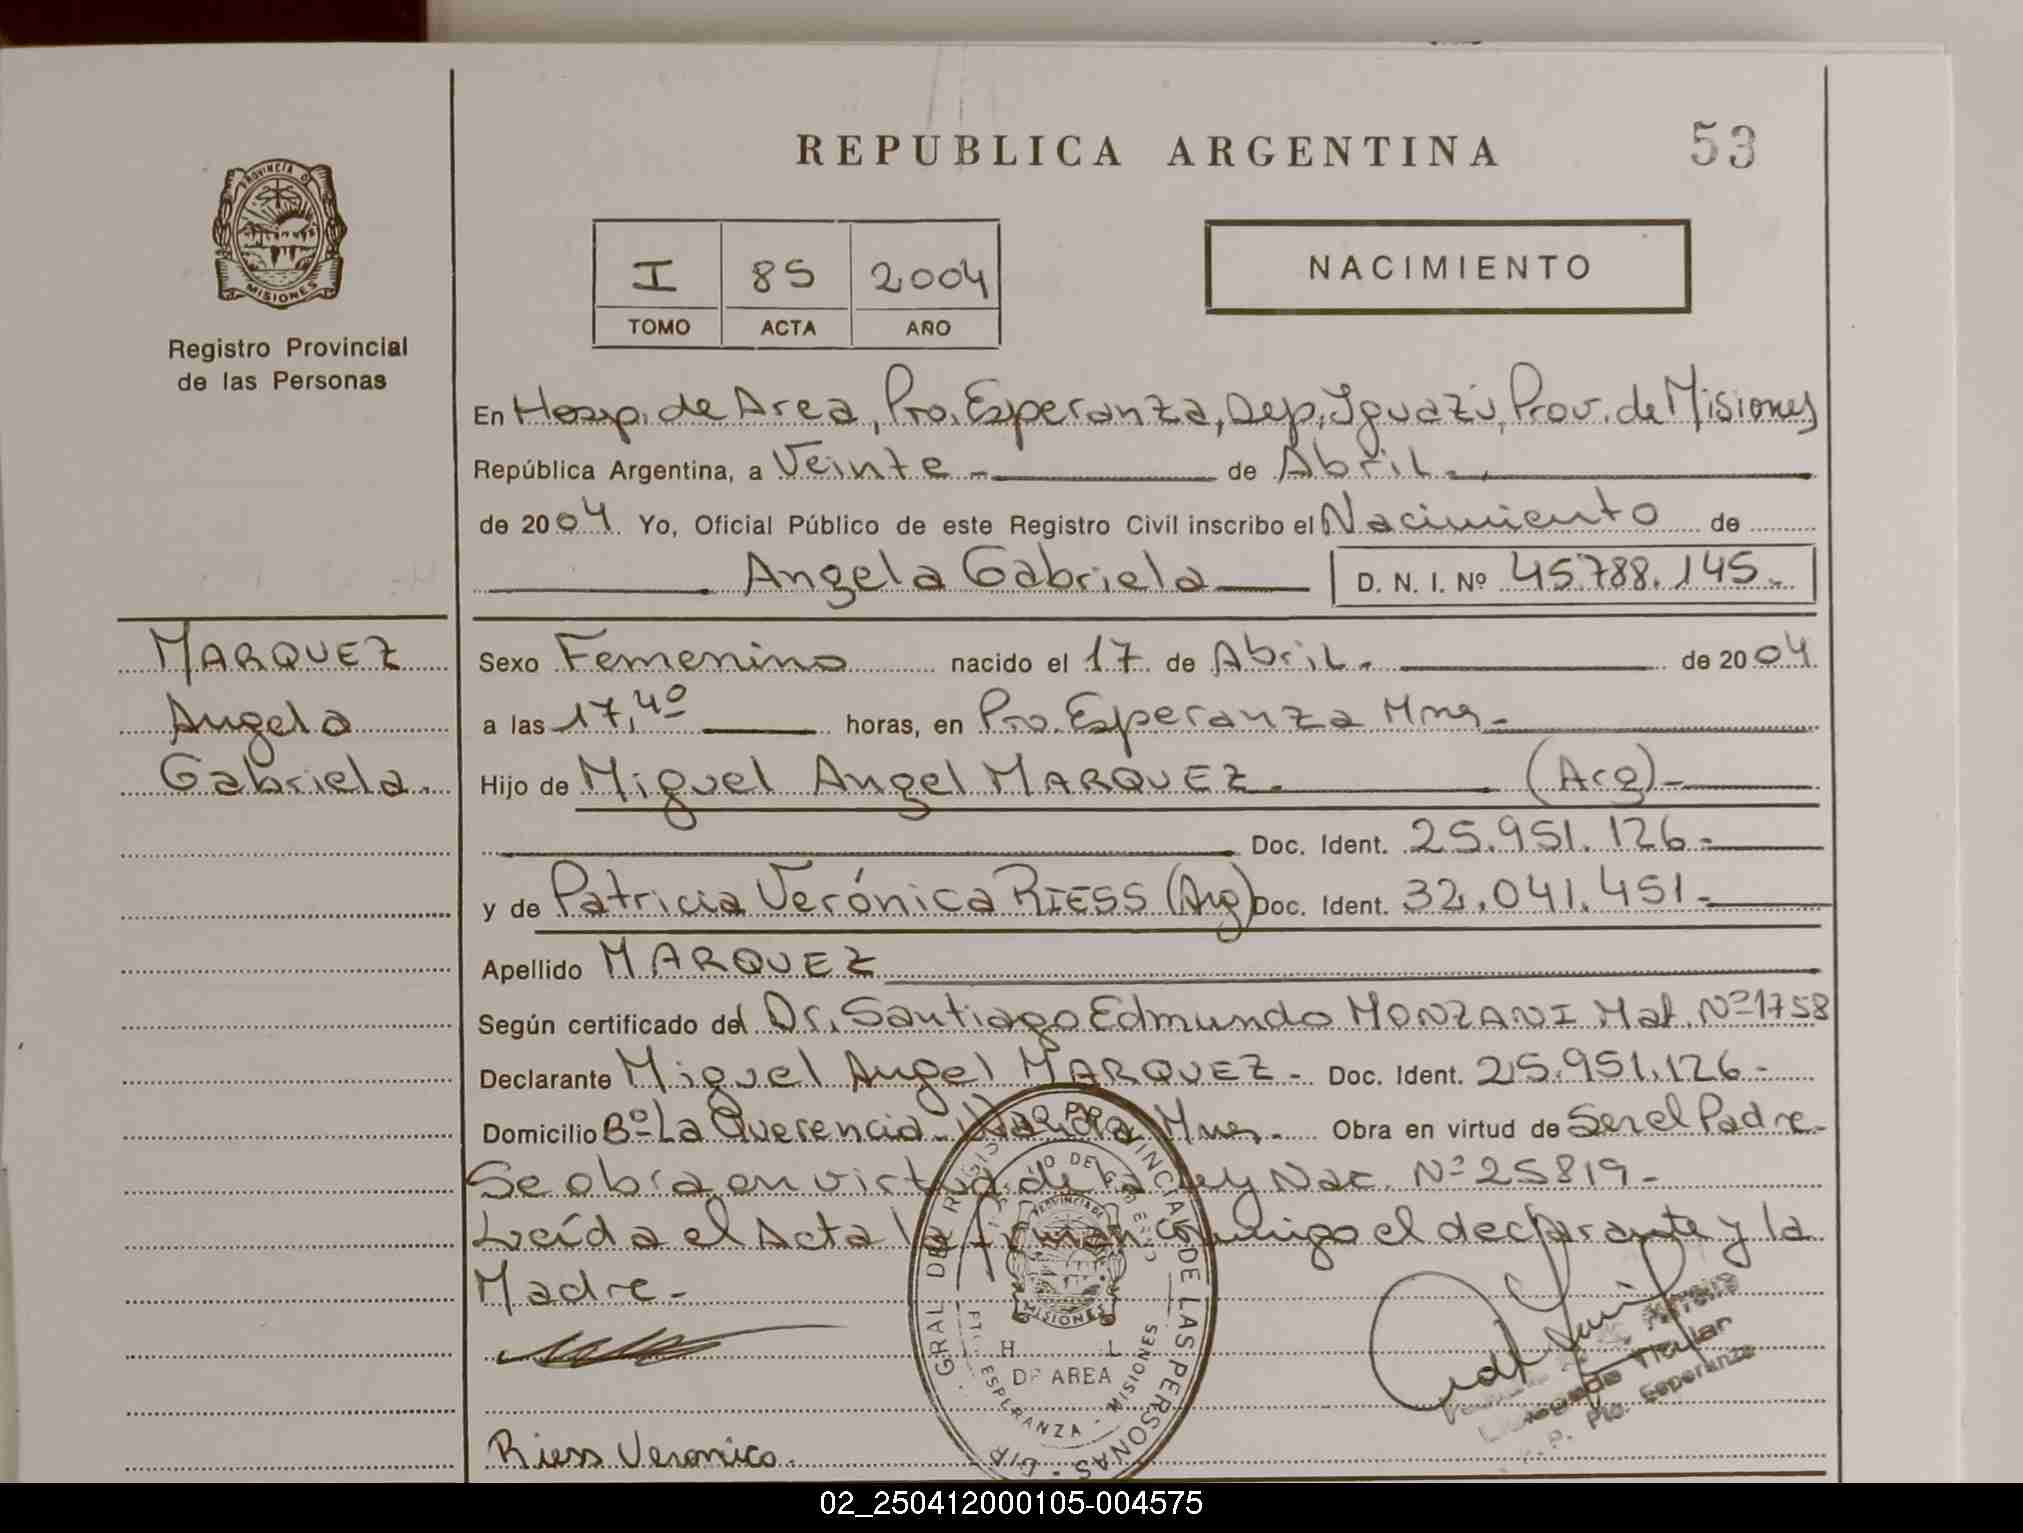 REPUBLICA ARGENTINA
53
PROVINCIA D
MISIONES
Registro Provincial
de las Personas
I 85 2004
TOMO ACTA AÑO
NACIMIENTO
En Hosp. de Area, Pto. Esperanza, Dep. Iguazú, Prov. de Misiones
República Argentina, a Veinte - de Abril.
de 2004 Yo, Oficial Público de este Registro Civil inscribo el Nacimiento de
Angela Gabriela D. N. I. Nº 45.788.145.-
MARQUEZ
Angela
Gabriela.
Sexo Femenino nacido el 17 de Abril. de 2004
a las 17,40 horas, en Pto. Esperanza Mnes.-
Hijo de Miguel Angel MARQUEZ. (Arg)-
Doc. Ident. 25.951.126.-
y de Patricia Verónica RIESS (Arg) Doc. Ident. 32.041.451.-
Apellido MARQUEZ
Según certificado del Dr. Santiago Edmundo MONZANI Mat. Nº 1758
Declarante Miguel Angel MARQUEZ - Doc. Ident. 25.951.126.-
Domicilio Bº La Querencia. Wanda Mnes.- Obra en virtud de Ser el Padre.-
Se obra en virtud de la Ley Nac. Nº 25819-
Leída el Acta la firman conmigo el declarante y la
Madre.-
GRAL DEL REGISTRO PROVINCIAL DE LAS PERSONAS · DIR
PROVINCIA DE
MISIONES
H L
DE AREA
PTO ESPERANZA - MISIONES
Titular
Pto. Esperanza
Riess Veronica.
02_250412000105-004575